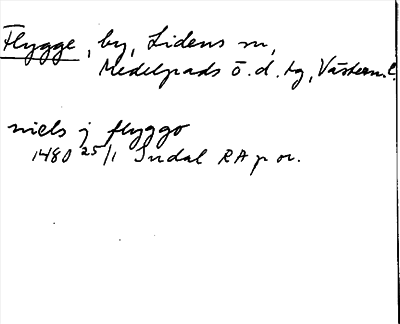 Flygge, by, Lidens sn,
Medelpads ö. d. tg, Västern. l.
niels j flyggo
1480 25/1 Indal RA p or.